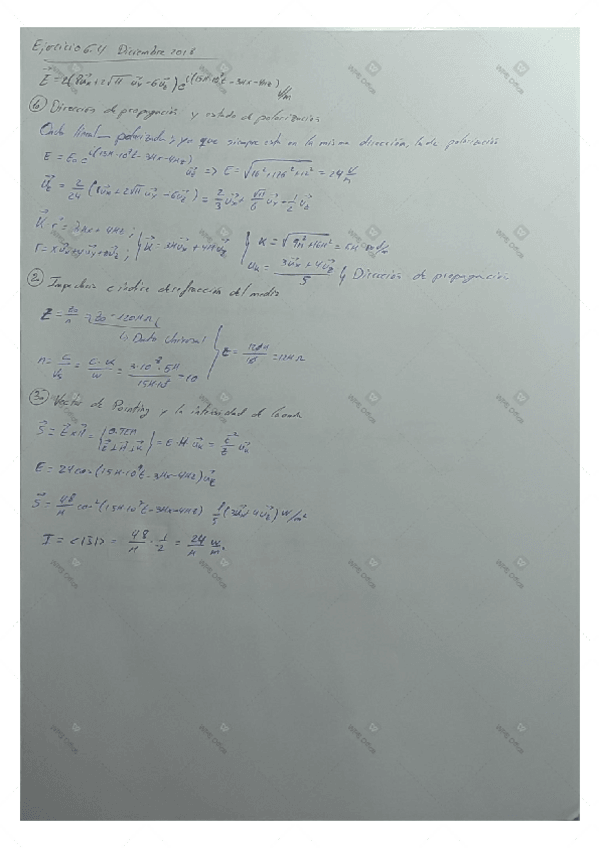 Ejercicio 6.4 Diciembre 2018
E = 2(8ux + 2√11 uy - 6uz) e^i(15π·10^8t - 3πx - 4πz) V/m
1o Dirección de propagación y estado de polarización
Onda linealmente polarizada, ya que siempre está en la misma dirección, la de polarización
E = E0 e^i(15π·10^8t - 3πx - 4πz) => E = = 24 V/m
uE = 2/24 (8ux + 2√11 uy - 6uz) = 2/3 ux + √11/6 uy - 1/2 uz
K r = 3πx + 4πz ; K = 3πux + 4πuz K = √9π²+16π² = 5π rad/m
r = xux + yuy + zuz ; uK = 3ux + 4uz / 5 Dirección de propagación
2o Impedancia e índice de refracción del medio
Z = Z0/n = Z0 = 120π Ω
Dato universal Z = 120π/10 = 12π Ω
n = c/v = c·K/w = 3·10^8·5π/15π·10^8 = 10
3o Vector de Pointing y la intensidad de la onda
S = E x H = = E·H uK = E²/Z uK
E = 24cos(15π·10^8t - 3πx - 4πz) uE
S = 48/π cos²(15π·10^8t - 3πx - 4πz) 1/5 (3ux + 4uz) W/m²
I = <|S|> = 48/π · 1/2 = 24/π W/m²
WPS Office